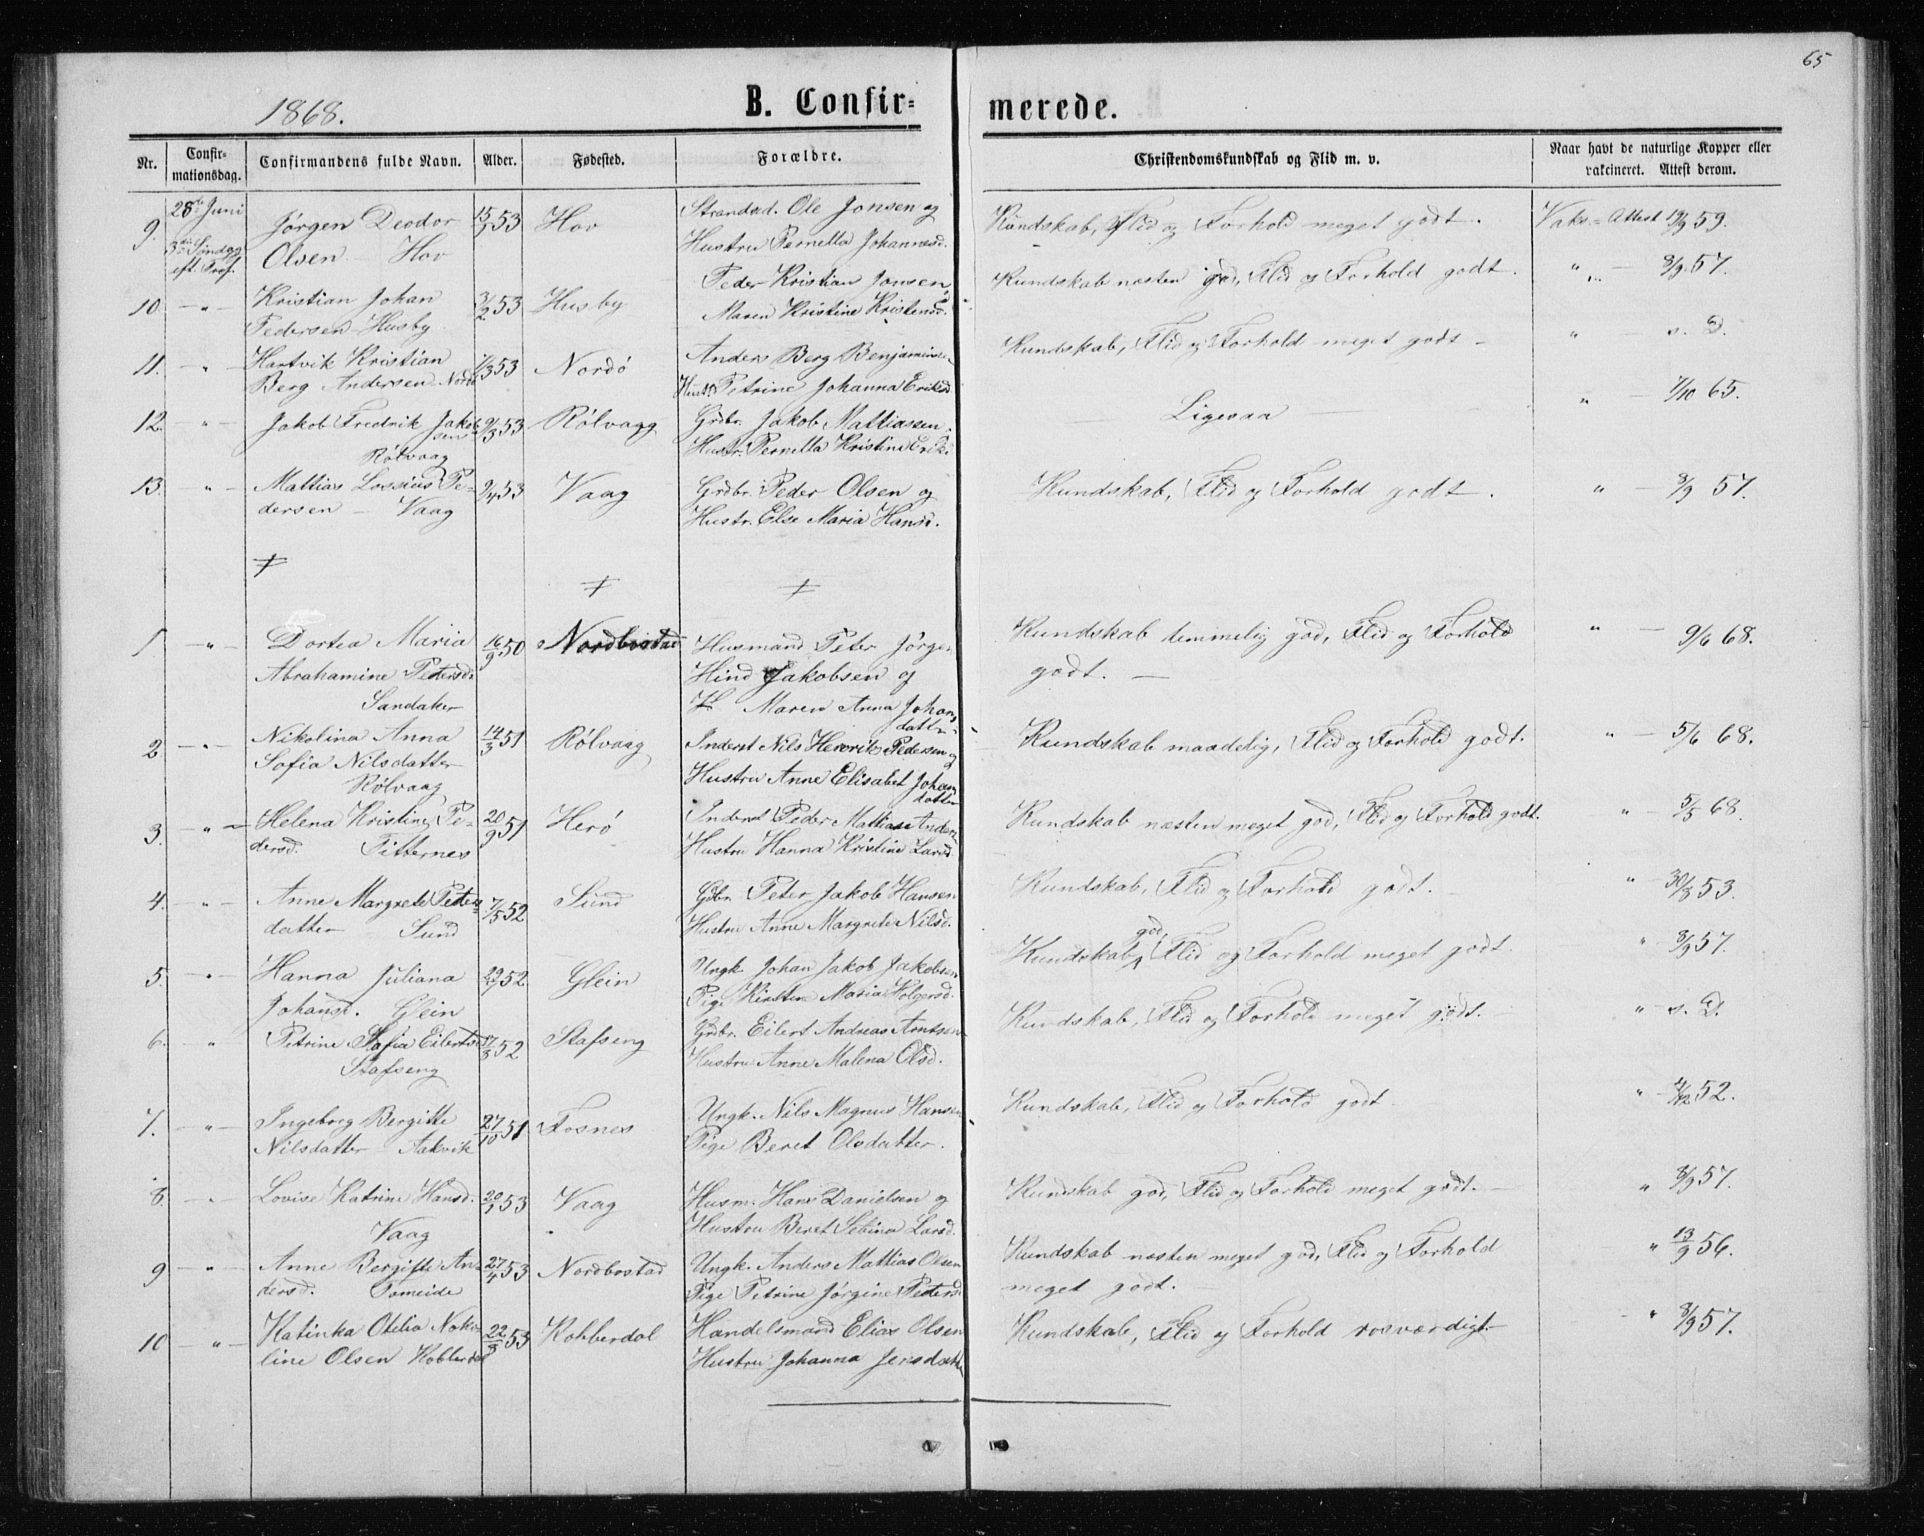 65
1868.
B. Confir-
merede.
Nr.
Confir-
mationsdag.
Confirmandens fulde Navn.
Alder.
Fødested.
Forældre.
Christendomskundskab og Flid m. v.
Naar havt de naturlige Kopper eller
vakcineret. Attest derom.
9.
28de Juni
3die Søndag
eft. Tref.
Jørgen Deodor
Olsen - Hov
15/1 53
Hov
Strandsd. Ole Jonsen og
Hustru Pernella Johannesd.
Kundskab, Flid og Forhold meget godt.
Vaks = Attest 19/9 59.
10.
- " -
Kristian Johan
Pedersen - Husby
3/2 53
Husby
Peder Kristian Jonsen
Maren Kristine Kristensd.
Kundskab næsten god, Flid og Forhold godt.
" - 8/9 57.
11.
- " -
Hartvik Kristian
Berg Andersen Nordø
1/3 53
Nordø
Anders Berg Benjamins.
Hustr. Petrine Johanna Eriksd
Kundskab, Flid og Forhold meget godt -
" - s. D.
12.
- " -
Jakob Fredrik Jakob-
sen
Rølvaag
9/3 53
Rølvagg
Grdbr. Jakob Mattiassen.
Hustr. Pernella Kristine Eriksd
Ligesaa
" - 7/10 65.
13.
"
Mattias Lossius Pe-
dersen - Vaag
9/4 53
Vaag
Grdbr. Peder Olsen og
Hustr. Else Maria Hansd.
Kundskab, Flid og Forhold godt.
" 8/9 57.
≠
≠
≠
1
- " -
Dortea Maria
Abrahamine Petersd.
Sandaker
16/9 50
Nordbostad
Husmand Peter Jørgen
Hind Jakobsen og
H. Maren Anna Johans
datter
Kundskab temmelig god, Flid og Forhold
godt. -
" - 9/6 68.
2.
- " -
Nikolina Anna
Sofia Nilsdatter
Rølvaag
14/3 51
Rølvaag
Inderst Nils Henrik Pedersen og
Hustru Anne Elisabet Johans
datter
Kundskab maadelig, Flid og Forhold godt.
" - 5/6 68.
3.
- " -
Helena Kristine Pe-
dersd. Titternes
20/9 51
Herø
Inderst Peder Mattias Anders
Hustru Hanna Kristine Larsd
Kundskab næsten meget god, Flid og Forhold godt.
" - 5/5 68.
4.
- " -
Anne Margrete Peter-
datter Sund
7/5 52
Sund
Gdbr. Peter Jakob Hansen
Hustru Anne Margrete Nilsd.
Kundskab, Flid og Forhold godt.
" - 30/8 53.
5.
"
Hanna Juliana
Johansd. Glein
52
Glein
Ungk. Johan Jakob Jakobsen
Pige Kirsten Maria Holgersd.
god,
Kundskab, Flid og Forhold meget godt.
" - 8/9 57.
6.
"
Petrine Sofia Eilertsd
Stafseng
52
Stafseng
Grdbr. Eilert Andreas Arntsen
Hustru Anne Malena Olsd.
Kundskab, Flid og Forhold meget godt. -
" - s. D.
7.
- " -
Ingeborg Bergitte
Nilsdatter Aakvik
27/10 51
Fosnes
Ungk. Nils Magnus Hansen
Pige Beret Olsdatter.
Kundskab, Flid og Forhold godt
" - 4/12 52.
8.
"
Lovise Katrine Hansd.
Vaag
20/1 53
Vaag
Husm. Hans Danielsen og
Hustru Beret Sebina Larsd.
Kundskab god, Flid og Forhold meget godt. -
" 8/9 57.
9
"
Anne Bergitte An-
dersd. Tomeide
27/4 53
Nordbostad
Ungk. Anders Mattias Olsen
Pige Petrine Jørgine Petersd
Kundskab næsten meget god, Flid og Forhold
meget godt. -
" 13/9 56.
10
- " -
Katinka Otilia Niko-
line Olsen Kobberdal
22/3 53
Kobberdal
Handelsmand Elias Olsen
Hustru Johanna Jensdatt
Kundskab, Flid og Forhold rosværdigt
" 8/9 57.